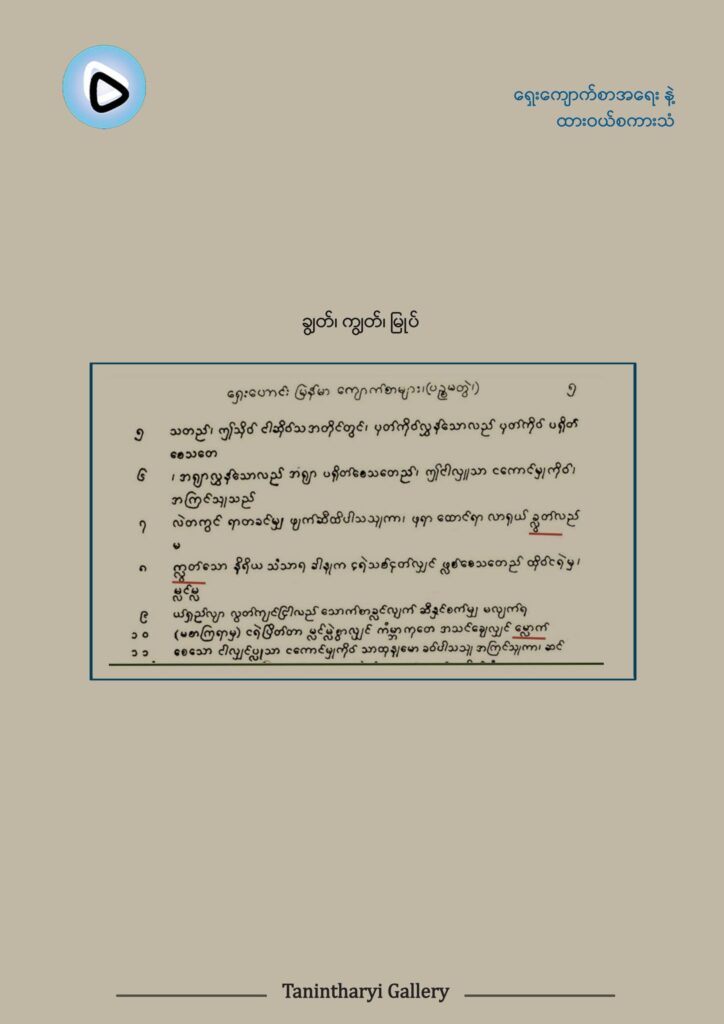 ရှေးကျောက်စာအရေး နဲ့
ထားဝယ်စကားသံ
ချွတ်၊ ကျွတ်၊ မြုပ်
ရှေးဟောင်း မြန်မာ ကျောက်စာများ၊(ပဉ္စမတွဲ၊) ၅
၅ သတည်၊ ဤသိုဝ် ငါဆိုဝ်သအတိုင်တွင်၊ ပုတ်ကိုဝ်လျှန်သောလည် ပုတ်ကိုဝ် ပရိုတ်
စေသတေ
၆ ၊ အရျာလျှန်သောလည် အရျာ ပရိုတ်စေသတေည်၊ ဤငါလှူသာ ငကောင်မှုကိုဝ်၊
အကြင်သူသည်
၇ လဲတကွင် ရာတခင်မျှ ဖျက်ဆီထိပါသသူကာ၊ ဖုရာ ထောင်ရာ လာရှယ် ခ္လွတ်လည်
မ
၈ က္လွတ်သော နိရိယ သံသာရ ခါနှုက ငရဲသစ်ငုတ်လျှင် ဖ္လစ်စေသတေည် ထိုဝ်ငရဲမှ၊
မ္လင်မ္လ
၉ ယ်ရှည်လျာ လွတ်ကျင်ငြါလည် သောက်စာခ္လင်လျက် ဆီနှင်စက်မျှ မလျက်ရ
၁၀ (မစာကြရာမှ) ငရဲပြိတ်တာ မ္လင်မ္လဲစွာလျှင် ကံမ္ဘာကုတေ အသင်ချေလျှင် မ္လှောက်
၁၁ စေသော ငါလျှင်ပ္လုသာ ငကောင်မှုကိုဝ် သာထုနှုမော ခဝ်ပါသသူ အကြင်သူကာ၊ ဆင်
Tanintharyi Gallery